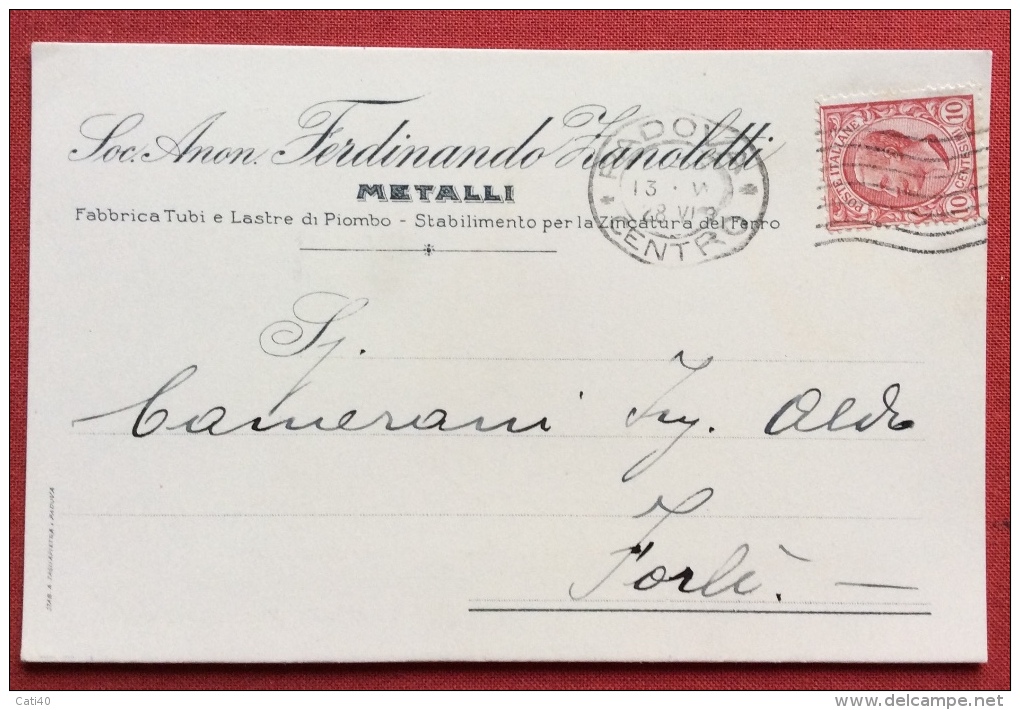 Soc. Anon. Ferdinando Zanoletti
METALLI
Fabbrica Tubi e Lastre di Piombo - Stabilimento per la Zincatura del Ferro
PADOVA
13 · VI
CENTRO
POSTE ITALIANE
10 CENTESIMI 10
Sig.
Camerani Ing. Aldo
Forlì. —
Cati40
www.delcampe.net